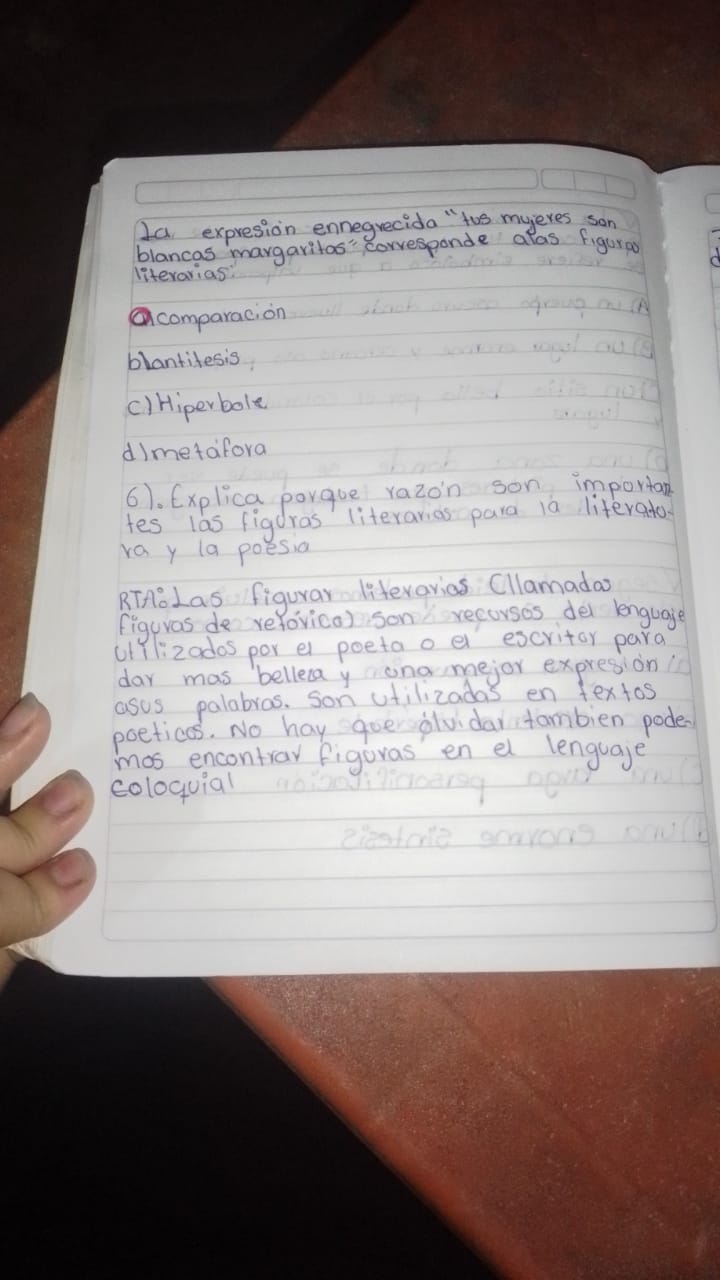 La expresión ennegrecida "tus mujeres son
blancas margaritas", corresponde alas figuras
literarias:
a) comparación
b) antitesis
c) Hiperbole
d) metáfora
6). Explica porque razón son importan
tes las figuras literarias para la literato-
ra y la poesia
RTA: Las figurar literarias (llamadas
figuras de retórica) son recursos del lenguaje
utilizados por el poeta o el escritor para
dar mas belleza y una mejor expresión
asus palabras. Son utilizadas en textos
poeticos. No hay que olvidar tambien pode-
mos encontrar figuras en el lenguaje
coloquial